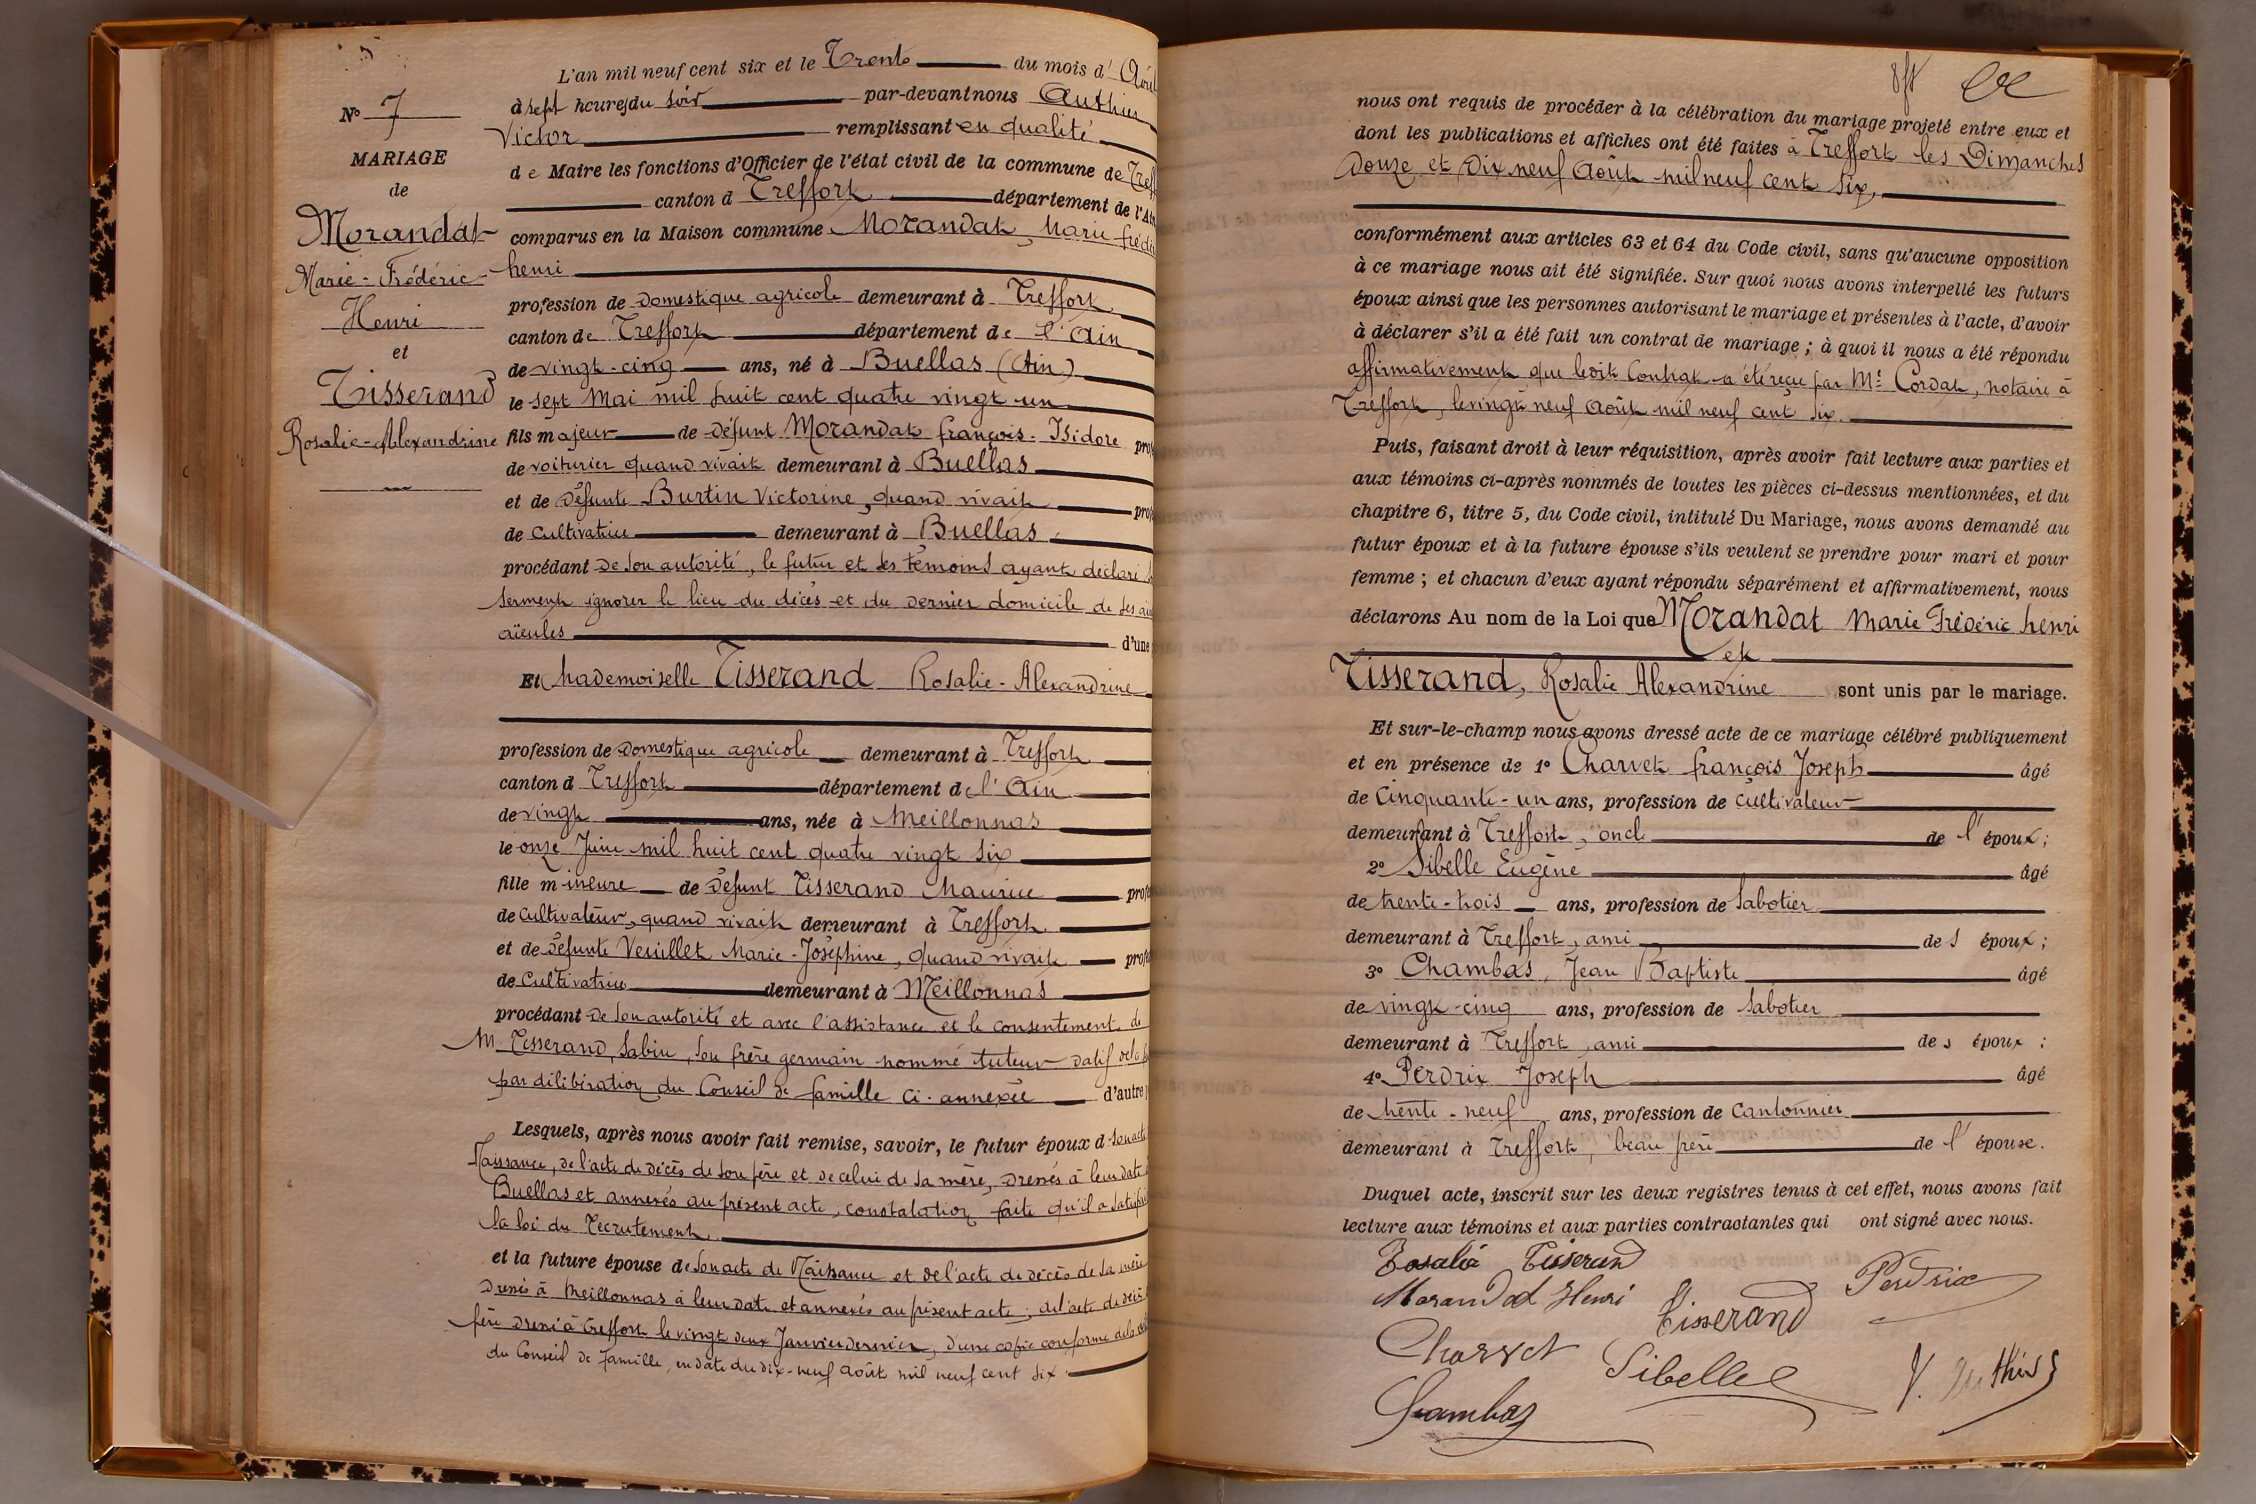 L'an mil neuf cent six et le Trente du mois d' Août
à sept heures du soir par-devant nous Authier
Victor remplissant en qualité
de Maire les fonctions d'Officier de l'état civil de la commune de Treff
canton d Treffort département de l'Ain
comparus en la Maison commune Morandat, Marie frédé
henri
profession de Domestique agricole demeurant à Treffort
canton de Treffort département de l'Ain
de vingt-cinq ans, né à Buellas (Ain)
le sept Mai mil huit cent quatre vingt un
fils majeur de défunt Morandat françois-Isidore prof
de voiturier quand vivait demeurant à Buellas
et de Défunte Burtin Victorine, quand vivait prof
de Cultivatrice demeurant à Buellas
procédant De son autorité, le futur et ses témoins ayant déclaré
serment ignorer le lieu du décès et du dernier domicile de ses
aïeules d'une
Et Mademoiselle Tisserand Rosalie-Alexandrine
profession de Domestique agricole demeurant à Treffort
canton d Treffort département de l'Ain
de vingt ans, née à Meillonnas
le onze Juin mil huit cent quatre vingt six
fille mineure de Défunt Tisserand Maurice prof
de Cultivateur, quand vivait demeurant à Treffort
et de Défunte Veuillet Marie-Joséphine, quand vivait prof
de Cultivatrice demeurant à Meillonnas
procédant De son autorité et avec l'assistance et le consentement de
M. Tisserand, Sabin, son frère germain nommé tuteur datif
par délibération du Conseil de famille ci-annexée d'autre
Lesquels, après nous avoir fait remise, savoir, le futur époux d son acte
Naissance, de l'acte de décès de son père et de celui de sa mère, dressés à leur date
Buellas et annexés au présent acte, constatation faite qu'il a satisfait
la loi du recrutement.
et la future épouse de son acte de Naissance et de l'acte de décès de sa mère
Dressés à Meillonnas à leur date et annexés au présent acte; de l'acte de décès
père dressé à Treffort le vingt deux Janvier dernier, d'une copie conforme de la
du Conseil de famille, en date du dix-neuf août mil neuf cent six.
N° 7
MARIAGE
de
Morandat
Marie-Frédéric-
Henri
et
Tisserand
Rosalie-Alexandrine
nous ont requis de procéder à la célébration du mariage projeté entre eux et
dont les publications et affiches ont été faites à Treffort les Dimanches
Douze et Dix neuf Août mil neuf cent six,
conformément aux articles 63 et 64 du Code civil, sans qu'aucune opposition
à ce mariage nous ait été signifiée. Sur quoi nous avons interpellé les futurs
époux ainsi que les personnes autorisant le mariage et présentes à l'acte, d'avoir
à déclarer s'il a été fait un contrat de mariage ; à quoi il nous a été répondu
affirmativement que ledit Contrat a été reçu par Me Cordat, notaire à
Treffort, le vingt neuf Août mil neuf cent six.
Puis, faisant droit à leur réquisition, après avoir fait lecture aux parties et
aux témoins ci-après nommés de toutes les pièces ci-dessus mentionnées, et du
chapitre 6, titre 5, du Code civil, intitulé Du Mariage, nous avons demandé au
futur époux et à la future épouse s'ils veulent se prendre pour mari et pour
femme ; et chacun d'eux ayant répondu séparément et affirmativement, nous
déclarons Au nom de la Loi que Morandat Marie Frédéric henri
et
Tisserand, Rosalie Alexandrine sont unis par le mariage.
Et sur-le-champ nous avons dressé acte de ce mariage célébré publiquement
et en présence de 1° Charvet françois Joseph âgé
de Cinquante-un ans, profession de Cultivateur
demeurant à Treffort, oncle de l'époux;
2° Sibelle Eugène âgé
de trente-trois ans, profession de Sabotier
demeurant à Treffort, ami des époux;
3° Chambas, Jean Baptiste âgé
de vingt-cinq ans, profession de Sabotier
demeurant à Treffort, ami des époux :
4° Perdrix Joseph âgé
de trente-neuf ans, profession de Cantonnier
demeurant à Treffort, beau frère de l'épouse.
Duquel acte, inscrit sur les deux registres tenus à cet effet, nous avons fait
lecture aux témoins et aux parties contractantes qui ont signé avec nous.
Rosalie Tisserand
Morandat Henri
Tisserand
Perdrix
Charvet
Sibelle
V. Authier
Chambas